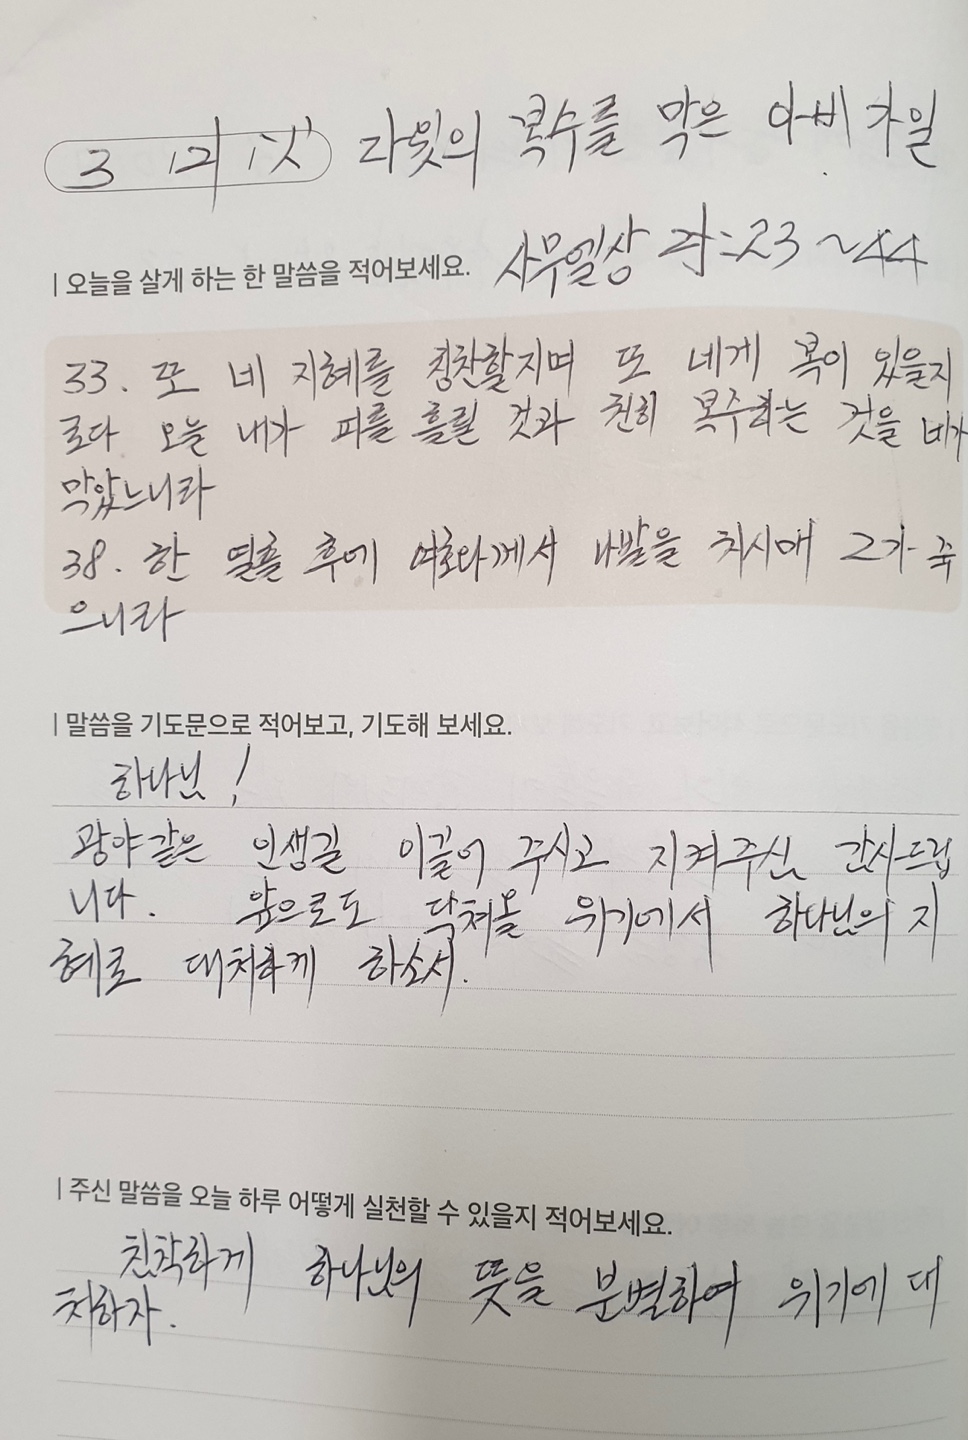 다윗의 복수를 막은 아비가일
사무엘상 25:23~44
| 오늘을 살게 하는 한 말씀을 적어보세요.
33. 또 네 지혜를 칭찬할지며 또 네게 복이 있을지
로다 오늘 내가 피를 흘릴 것과 친히 복수하는 것을 네가
막았느니라
38. 한 열흘 후에 여호와께서 나발을 치시매 그가 죽
으니라
| 말씀을 기도문으로 적어보고, 기도해 보세요.
하나님!
광야같은 인생길 이끌어 주시고 지켜주신 감사드립
니다. 앞으로도 닥쳐올 위기에서 하나님의 지
혜로 대처하게 하소서.
| 주신 말씀을 오늘 하루 어떻게 실천할 수 있을지 적어보세요.
침착하게 하나님의 뜻을 분별하여 위기에 대
처하자.